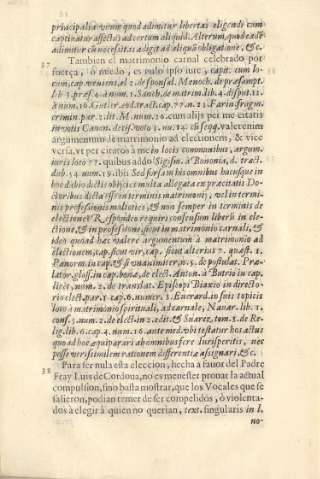 principaliùs verum quod adimitur libertas eligendi cum
captivatur affectus ad certum aliquid. Alterum, quod est
adimitur ex necessitate adigit ad aliquã obligatione. &c.
37 Tambien el matrimonio carnal celebrado por
fuerça, ò miedo, es nulo ipso iure, capit. cum lo-
cum, cap. veniens, el 2. de sponsal. Menoch. de præsumpt.
lib. 3. præs. 4. num. 1. Sanch. de matrim. lib. 4. disput. 12.
à num. 10. Gutier. eod. tract. cap. 77. n. 21. Farin. fragm.
crimin. par. 2. lit. M. num. 10. cum alijs per me citatis
in votis Canon. decis. voto 1. nu. 24. cũ seqq. valet enim
argumentum de matrimonio ad electionem, & vice
versa, vt per citatos à me in locis communibus, argum.
iuris loto 77. quibus addo Sigism. à Bononia, d. tract.
dub. 54. num. 19. ibi: Sed forsam his omnibus hucusque in
hoc dubio dictis obijci et multa allegata ex præcitatis Do-
ctoribus dicta esse in terminis matrimonij, vel in termi-
nis professionis molioties, & non semper in terminis de
electione: Respondeo requiri consensum liberũ in ele-
ctione, & in professione, sicut in matrimonio carnali, & 
ideo quoad hæc valere argumentum à matrimonio ad
electionem, cap. sicut vir, cap. sicut alterius 7. quæst. 1.
Panorm. in cap. & si vnanimiter, n. 5. de postulat. Præ-
lator. gloss. in cap. bonæ, de elect. Anton. à Butrio in cap.
licèt, num. 2. de translat. Episcopi Biaxio in directo-
rio elect. par. 1. cap. 6. numer. 1. Euerard. in suis topicis
loco à matrimonio spirituali, ad carnale, Nauar. lib. 1.
cons. 3. num. 2. de elect. in 2. edit. & Suarez, tom. 3. de Re-
lig. lib. 6. cap. 4. num. 16. ante med. vbi testatur hos actus
quoad hoc æquiparari ab omnibus fere Iurisperitis, nec
posse verisimilem rationem differentiæ assignari, &c.
38 Para ser nula esta eleccion, hecha a fauor del Padre
Fray Luis de Cordoua, no es menester prouar la actual
compulsion, sino basta mostrar, que los Vocales que se
salieron, podian temer de ser compelidos, ò violenta-
dos à elegir à quien no querian, text. singularis in l.
no-